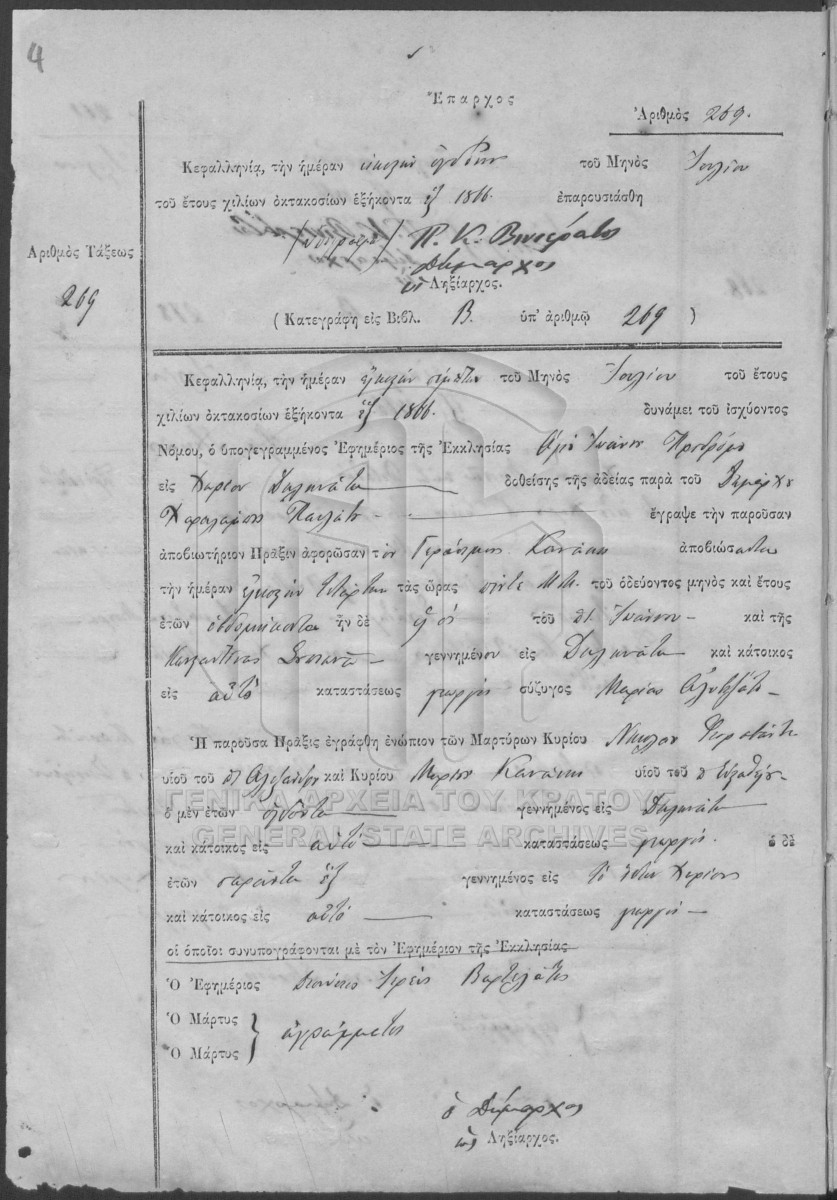 4
Ἔπαρχος
Ἀριθμὸς 269.
Κεφαλληνίᾳ, τὴν ἡμέραν εἰκοστὴν ὀγδόην τοῦ Μηνὸς Ἰουλίου
τοῦ ἔτους χιλίων ὀκτακοσίων ἑξήκοντα ἓξ 1866. ἐπαρουσιάσθη
Π. Κ.
Δήμαρχος
ὡς Ληξίαρχος.
Ἀριθμὸς Τάξεως
269
( Κατεγράφη εἰς Βιβλ. Β. ὑπ' ἀριθμῷ 269 )
Κεφαλληνίᾳ, τὴν ἡμέραν εἰκοστὴν πέμπτην τοῦ Μηνὸς Ἰουλίου τοῦ ἔτους
χιλίων ὀκτακοσίων ἑξήκοντα ἓξ 1866. δυνάμει τοῦ ἰσχύοντος
Νόμου, ὁ ὑπογεγραμμένος Ἐφημέριος τῆς Ἐκκλησίας Ἁγίου Ἰωάννου Προδρόμου
εἰς Χωρίον Δαλινάτα δοθείσης τῆς ἀδείας παρὰ τοῦ Δημάρχου
Χαραλάμπη Παυλάτου ἔγραψε τὴν παροῦσαν
ἀποβιωτήριον Πρᾶξιν ἀφορῶσαν τὸν Γεράσιμον Κανάκη ἀποβιώσαντα
τὴν ἡμέραν εἰκοστὴν τετάρτην τὰς ὥρας πέντε Μ.Μ. τοῦ ὁδεύοντος μηνὸς καὶ ἔτους
ἐτῶν ἑβδομήκοντα ἦν δὲ υἱὸς τοῦ Ἰωάννου καὶ τῆς
Κωνσταντίνας γεννημένον εἰς Δαλινάτα καὶ κάτοικος
εἰς αὐτό καταστάσεως γεωργός σύζυγος Μαρίας
Ἡ παροῦσα Πρᾶξις ἐγράφθη ἐνώπιον τῶν Μαρτύρων Κυρίου Νικολάου
υἱοῦ τοῦ Ἀλεξάνδρου καὶ Κυρίου Μαρίνου Κανάκη υἱοῦ τοῦ
ὁ μὲν ἐτῶν ὀγδόντα γεννημένος εἰς Δαλινάτα
καὶ κάτοικος εἰς αὐτό καταστάσεως γεωργός. ὁ δὲ
ἐτῶν σαράντα ἓξ γεννημένος εἰς τὸ ἴδιον Χωρίον
καὶ κάτοικος εἰς αὐτό καταστάσεως γεωργός
οἱ ὁποῖοι συνυπογράφονται μὲ τὸν Ἐφημέριον τῆς Ἐκκλησίας
Ὁ Ἐφημέριος Διονύσιος Ἱερεὺς
Ὁ Μάρτυς
Ὁ Μάρτυς
ἀγράμματοι
ὁ Δήμαρχος
ὡς Ληξίαρχος.
ΓΕΝΙΚΑ ΑΡΧΕΙΑ ΤΟΥ ΚΡΑΤΟΥΣ
GENERAL STATE ARCHIVES